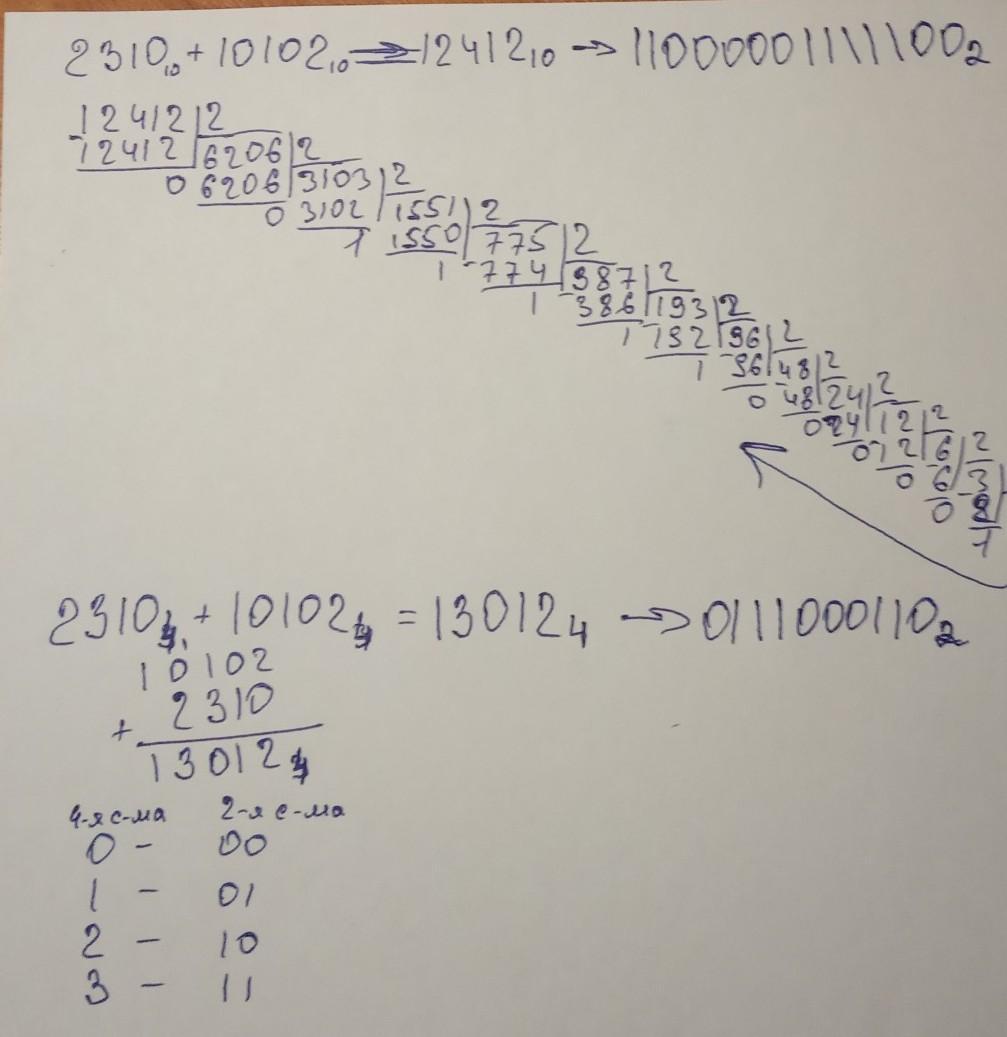 2310₁₀ + 10102₁₀ = 12412₁₀ → 11000001111100₂
12412 2
-12412 6206 2
0 6206 3103 2
0 3102 1551 2
1 1550 775 2
1 -774 387 2
1 -386 193 2
1 -192 96 2
1 -96 48 2
0 48 24 2
0 24 12 2
0 12 6 2
0 6 3
0 2
1
2310₄ + 10102₄ = 13012₄ → 0111000110₂
10102
+ 2310
13012₄
4-я с-ма 2-я с-ма
0 - 00
1 - 01
2 - 10
3 - 11